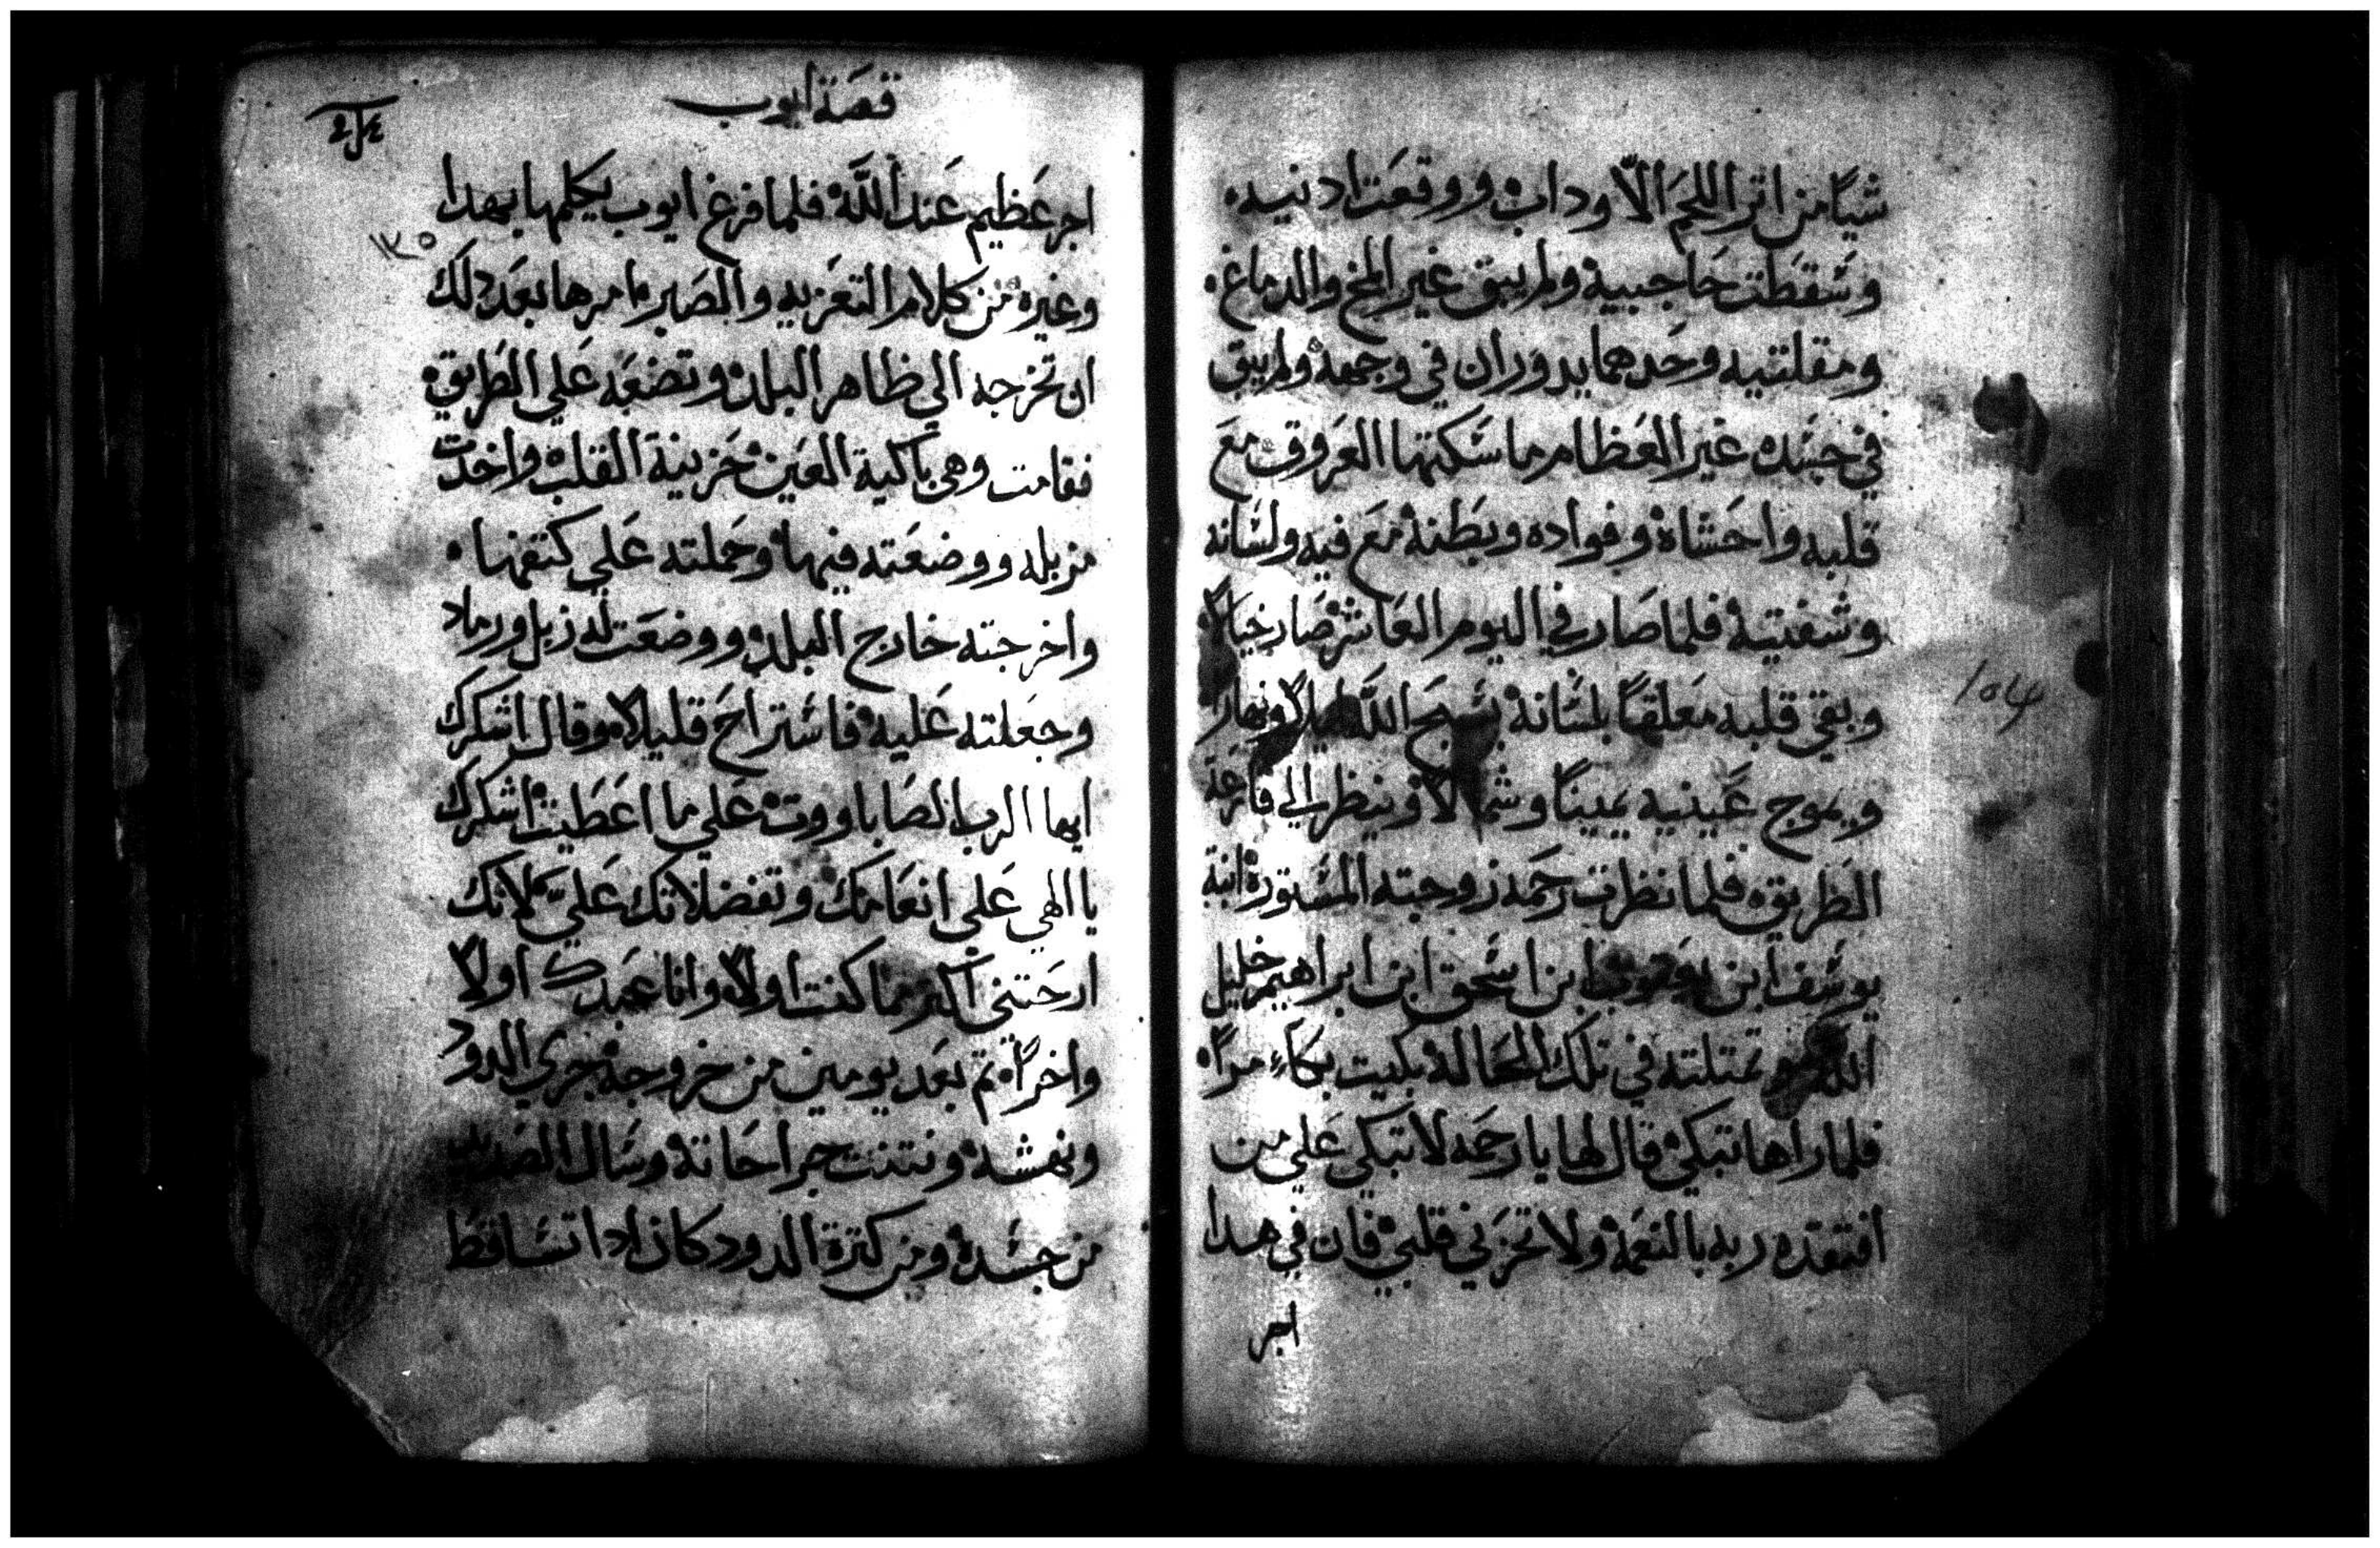 شيا من اتر اللحم الا وداب ووقعت ادنيه
وسقطت حاجبيه ولم يبق غير المخ والدماغ
ومقلتيه وحدهما يدوران في وجهه ولم يبق
في جسده غير العظام ماسكتها العروق مع
قلبه واحشاه وفواده وبطنه مع فيه ولسانه
وشفتيه فلما صار في اليوم العاشر صار خيالا
وبقي قلبه معلقا بلسانه يسبح الله ليلا ونهارا
ويموج عينيه يمينا وشمالا وينظر الي قارعة
الطريق فلما نظرت رحمه زوجته المستوره ابنة
يوسف ابن يعقوب ابن اسحق ابن ابراهيم خليل
الله تمتلته في تلك الحالة بكيت بكاء مرا
فلما راها تبكي قال لها يا رحمه لا تبكي علي من
افتقده ربه بالنعمة ولا تحزني قلبي فان في هدا
اجر
١٥٤
قصة ايوب
اجر عظيم عند الله فلما فرغ ايوب يكلمها بهدا
وغيره من كلام التعزيه والصبر امرها بعد دلك
ان تخرجه الي ظاهر البلد وتضعه علي الطريق
فقامت وهي باكية العين حزينة القلب واخدت
مزبله ووضعته فيها وحملته علي كتفها
واخرجته خارج البلد ووضعت له زبل ورماد
وجعلته عليه فاستراح قليلا وقال اشكرك
ايها الرب الصاباووت علي ما اعطيت اشكرك
يا الهي علي انعامك وتفضلاتك علي لانك
ارحتني اكتر مما كنت اولا وانا عبدك اولا
واخرا تم بعد يومين من خروجه جري الدود
ونهشه ونتنت جراحاته وسال الصديد
من جسده ومن كترة الدود كان ادا تساقط